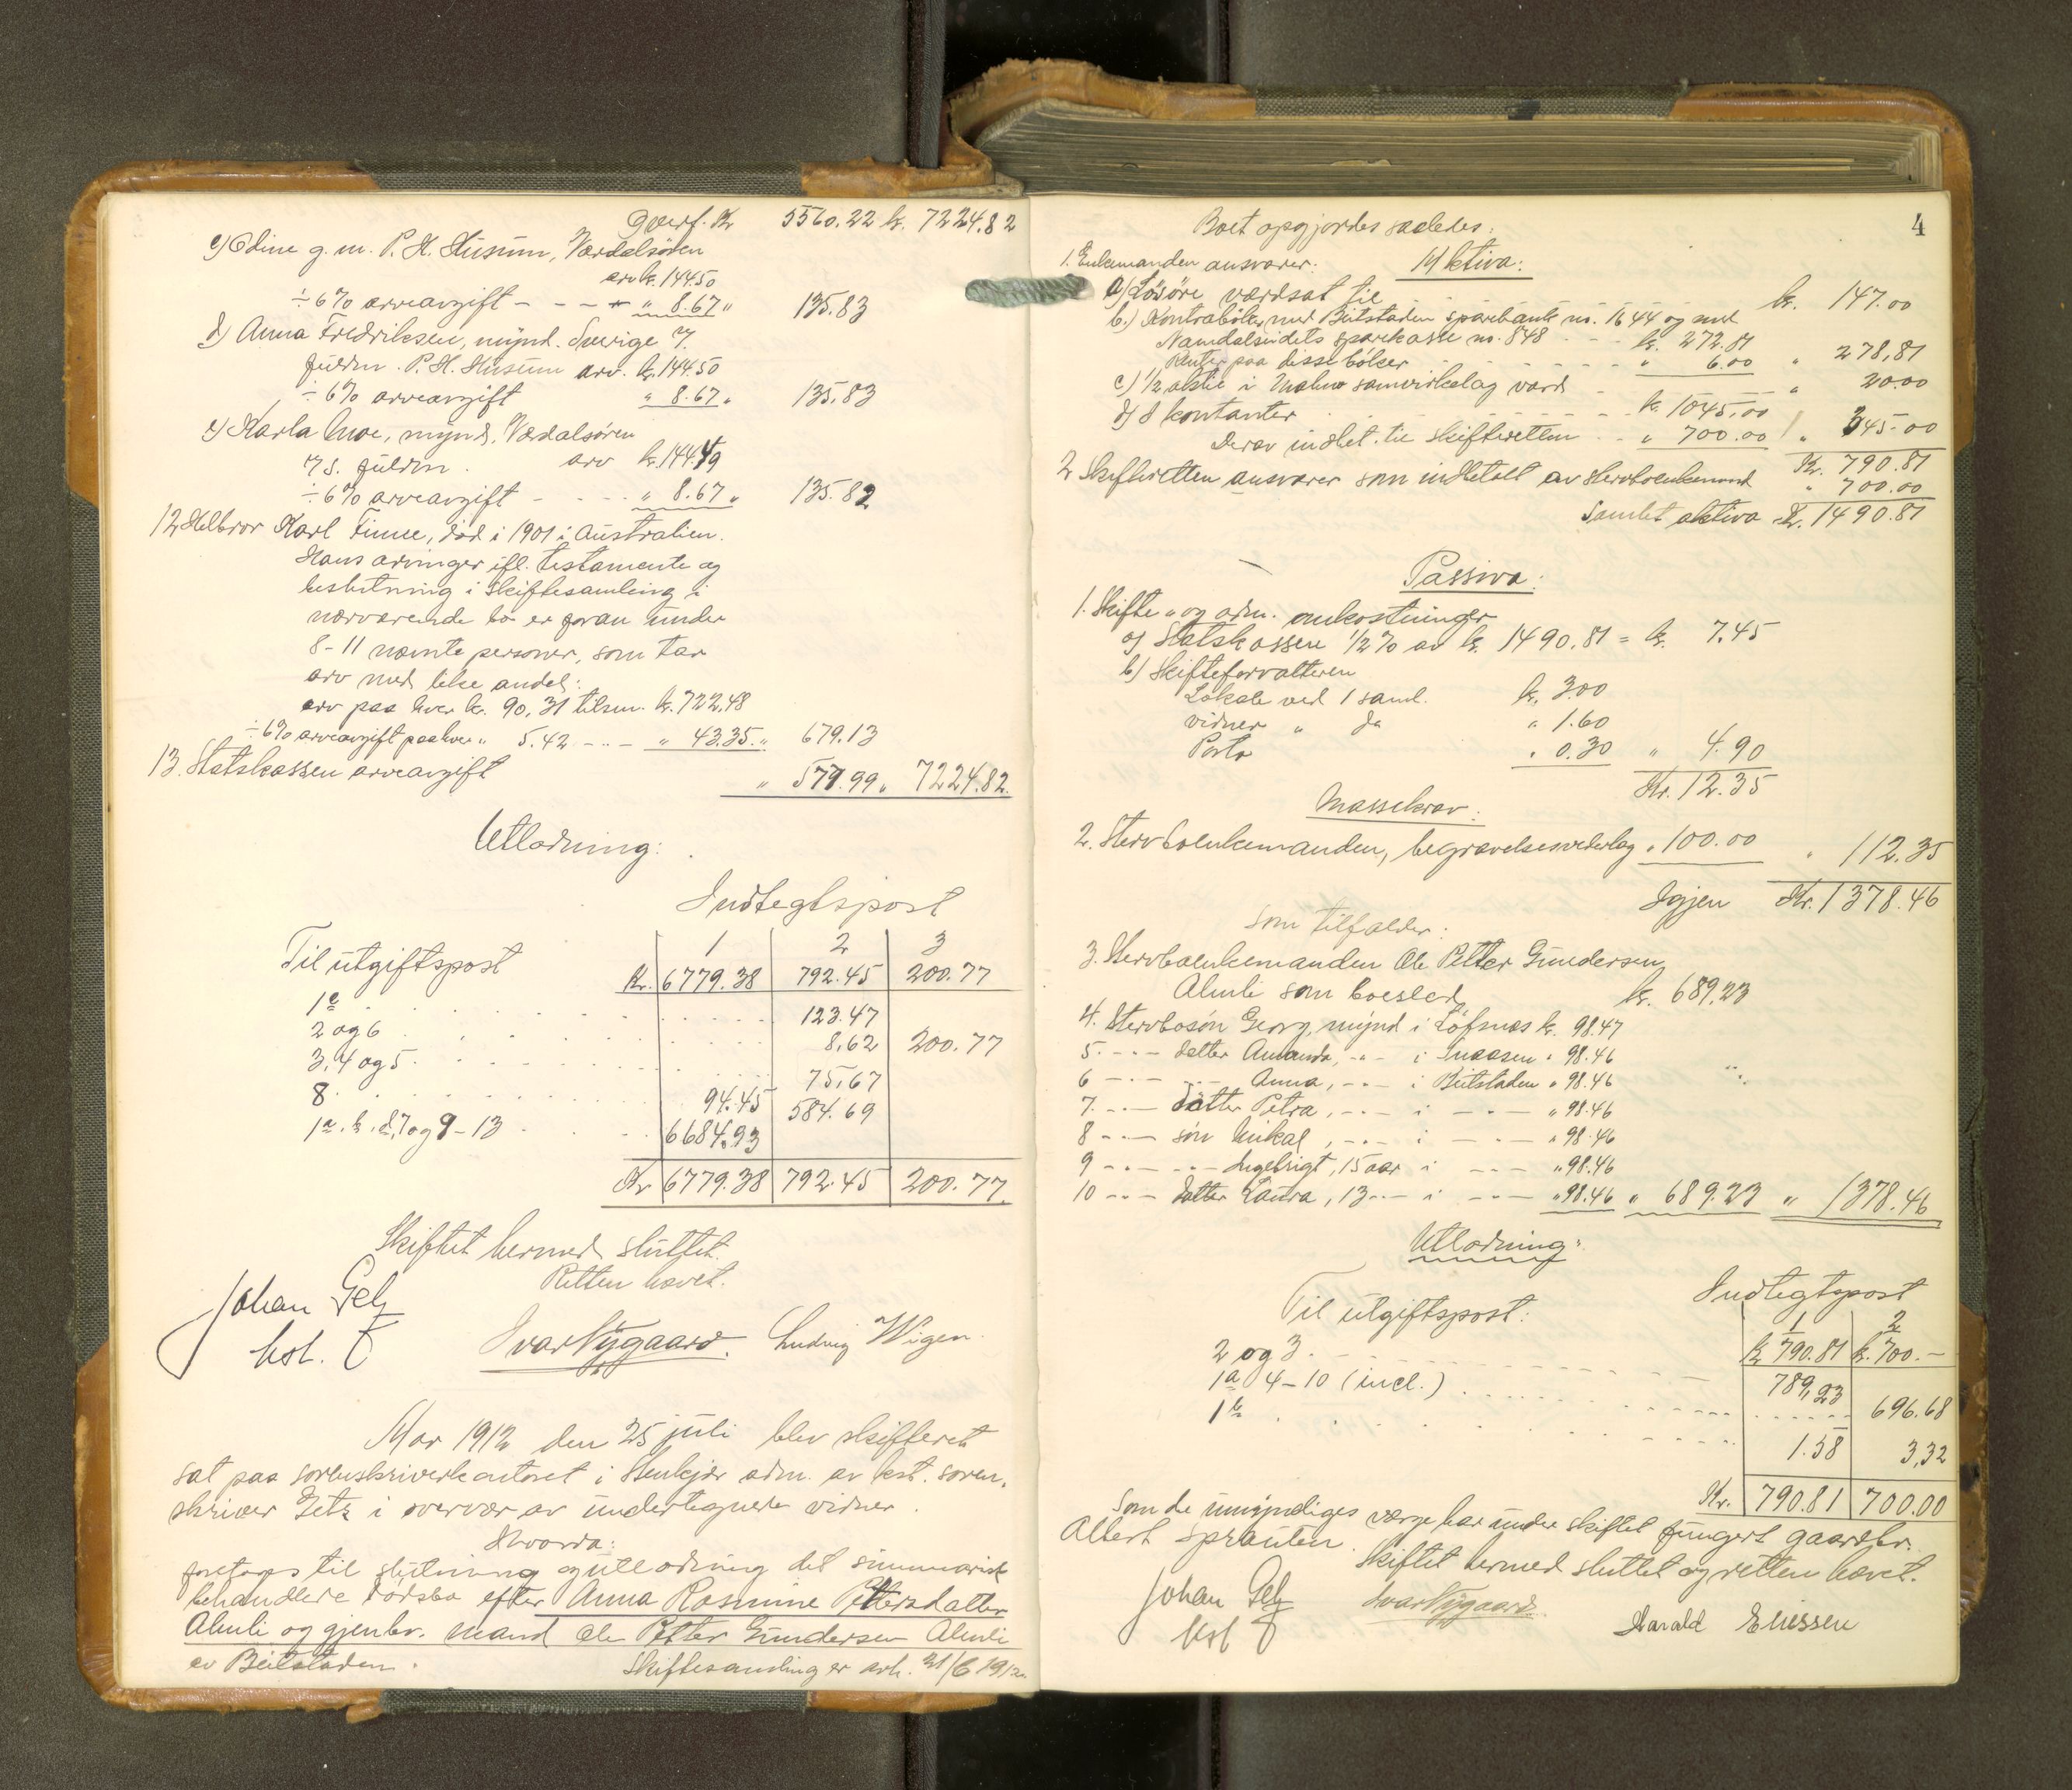 Overf. Kr. 5560.22 kr. 7224.82
c) Odine g. m. P. H. Husum, Værdalsøren
arv kr. 144.50
÷ 6% arveavgift - - - " 8.67 " 135.83
d) Anna Fredriksen, mynd. Sverige
fuldm. P. H. Husum arv. kr. 144.50
÷ 6% arveavgift " 8.67 " 135.83
e) Karla Moe, mynd. Værdalsøren
s. fuldm. arv kr. 144.49
÷ 6% arveavgift - - - " 8.67 " 135.82
12 Helbror Karl Finne, død i 1901 i Australien.
Hans arvinger ifl. testamente og
beslutning i skiftesamling i
nærværende bo er foran under
8-11 nævnte personer, som tar
arv med like andel:
arv paa hver kr. 90.31 tilsm. kr. 722.48
÷ 6% arveavgift paa hver " 5.42 - - - " 43.35 " 679.13
13. Statskassen arveavgift " 577.99 " 7224.82
Utlodning:
Indtegtspost
Til utgiftspost 1 2 3
Kr. 6779.38 792.45 200.77
1 c 123.47
2 og 6 8.62 200.77
3, 4 og 5 75.67
8 94.45 584.69
1 a. b. d, 7 og 9-13 6684.93
Kr 6779.38 792.45 200.77
Skiftet hermed sluttet.
Retten hævet.
Johan Getz
kst.
Ivar Nygaard. Ludvig Wigen
Aar 1912 den 25 juli blev skifteret
sat paa sorenskriverkontoret i Stenkjær adm. av kst. soren-
skriver Getz i overvær av undertegnede vidner.
Hvorda:
foretages til slutning og utlodning det summarisk
behandlede dødsbo efter Anna Rosmine Pettersdatter
Almli og gjenlev. mand Ole Petter Gundersen Almli
av Beitstaden. Skiftesamling er avh. 21/6 1912.
4
Boet opgjordes saaledes:
1. Enkemanden ansvarer: Aktiva:
a) Løsøre værdsat til kr. 147.00
b.) Kontrabøker med Beitstaden sparebank no. 1644 og med
Namdalseidets sparekasse no. 848 - - - kr. 272.81
Renter paa disse bøker " 6.00 " 278.81
c) 1/2 aktie i Malm samvirkelag værd " 20.00
d) I kontanter kr. 1045.00
Derav indbet. til skifteretten " 700.00 " 345.00
Kr. 790.81
2 Skifteretten ansvarer som indbetalt av stervboenkemand " 700.00
Samlet aktiva kr. 1490.81
Passiva:
1. Skifte- og adm. omkostninger
a) Statskassen 1/2% av kr. 1490.81 = kr. 7.45
b) Skifteforvalteren
Lokale ved 1 saml. kr. 3.00
vidner " do " 1.60
Porto " 0.30 " 4.90
Kr. 12.35
Massekrav:
2. Stervboenkemanden, begravelsesvederlag " 100.00 " 112.35
Igjen Kr. 1378.46
som tilfalder:
3. Stervboenkemanden Ole Petter Gundersen
Almli som boeslod kr. 689.23
4. Stervbosøn Georg, mynd i Løfsnæs kr. 98.47
5. - " - datter Amanda, - " - i Snaasen " 98.46
6 - " - - " - Anna, - " - i Beitstaden " 98.46
7. - " - datter Petra, - " - i - " - " 98.46
8 - " - søn Mikal, - " - i - " - " 98.46
9 - " - - " - Ingebrigt, 15 aar i - " - " 98.46
10 - " - datter Laura, 13 - " - i - " - " 98.46 " 689.23 " 1378.46
Utlodning:
Indtegtspost
Til utgiftspost: 1 2
kr. 790.81 kr. 700.-
2 og 3 789.23
1 a 4-10 (incl.) 696.68
1 b 1.58 3.32
Kr. 790.81 700.00
Som de umyndiges værge har under skiftet fungert gaardbr.
Albert Sprauten.
Skiftet hermed sluttet og retten hævet.
Johan Getz
kst
Ivar Nygaard
Harald Eliessen